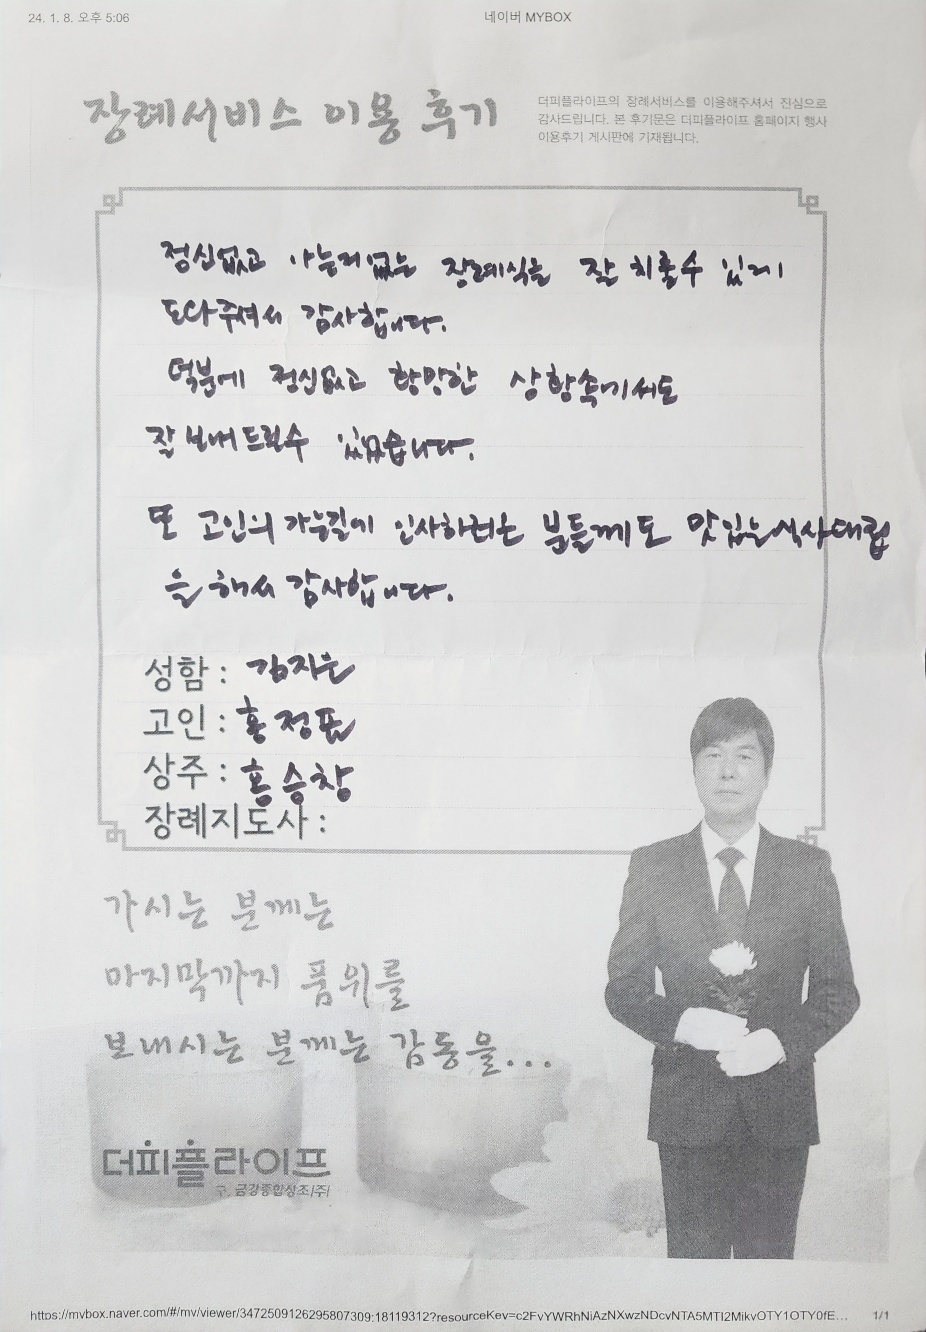 24. 1. 8. 오후 5:06
네이버 MYBOX
장례서비스 이용 후기
더피플라이프의 장례서비스를 이용해주셔서 진심으로
감사드립니다. 본 후기문은 더피플라이프 홈페이지 행사
이용후기 게시판에 기재됩니다.
정신없고 아는거없는 장례식을 잘 치룰수 있게
도와주셔서 감사합니다.
덕분에 정신없고 황망한 상황속에서도
잘 보내드릴수 있었습니다.
또 고인의 가는길에 인사하러온 분들께도 맛있는식사대접
을 해서 감사합니다.
성함 : 김지은
고인 : 홍정표
상주 : 홍승창
장례지도사 :
가시는 분께는
마지막까지 품위를
보내시는 분께는 감동을...
더피플라이프
구. 금강종합상조(주)
1/1